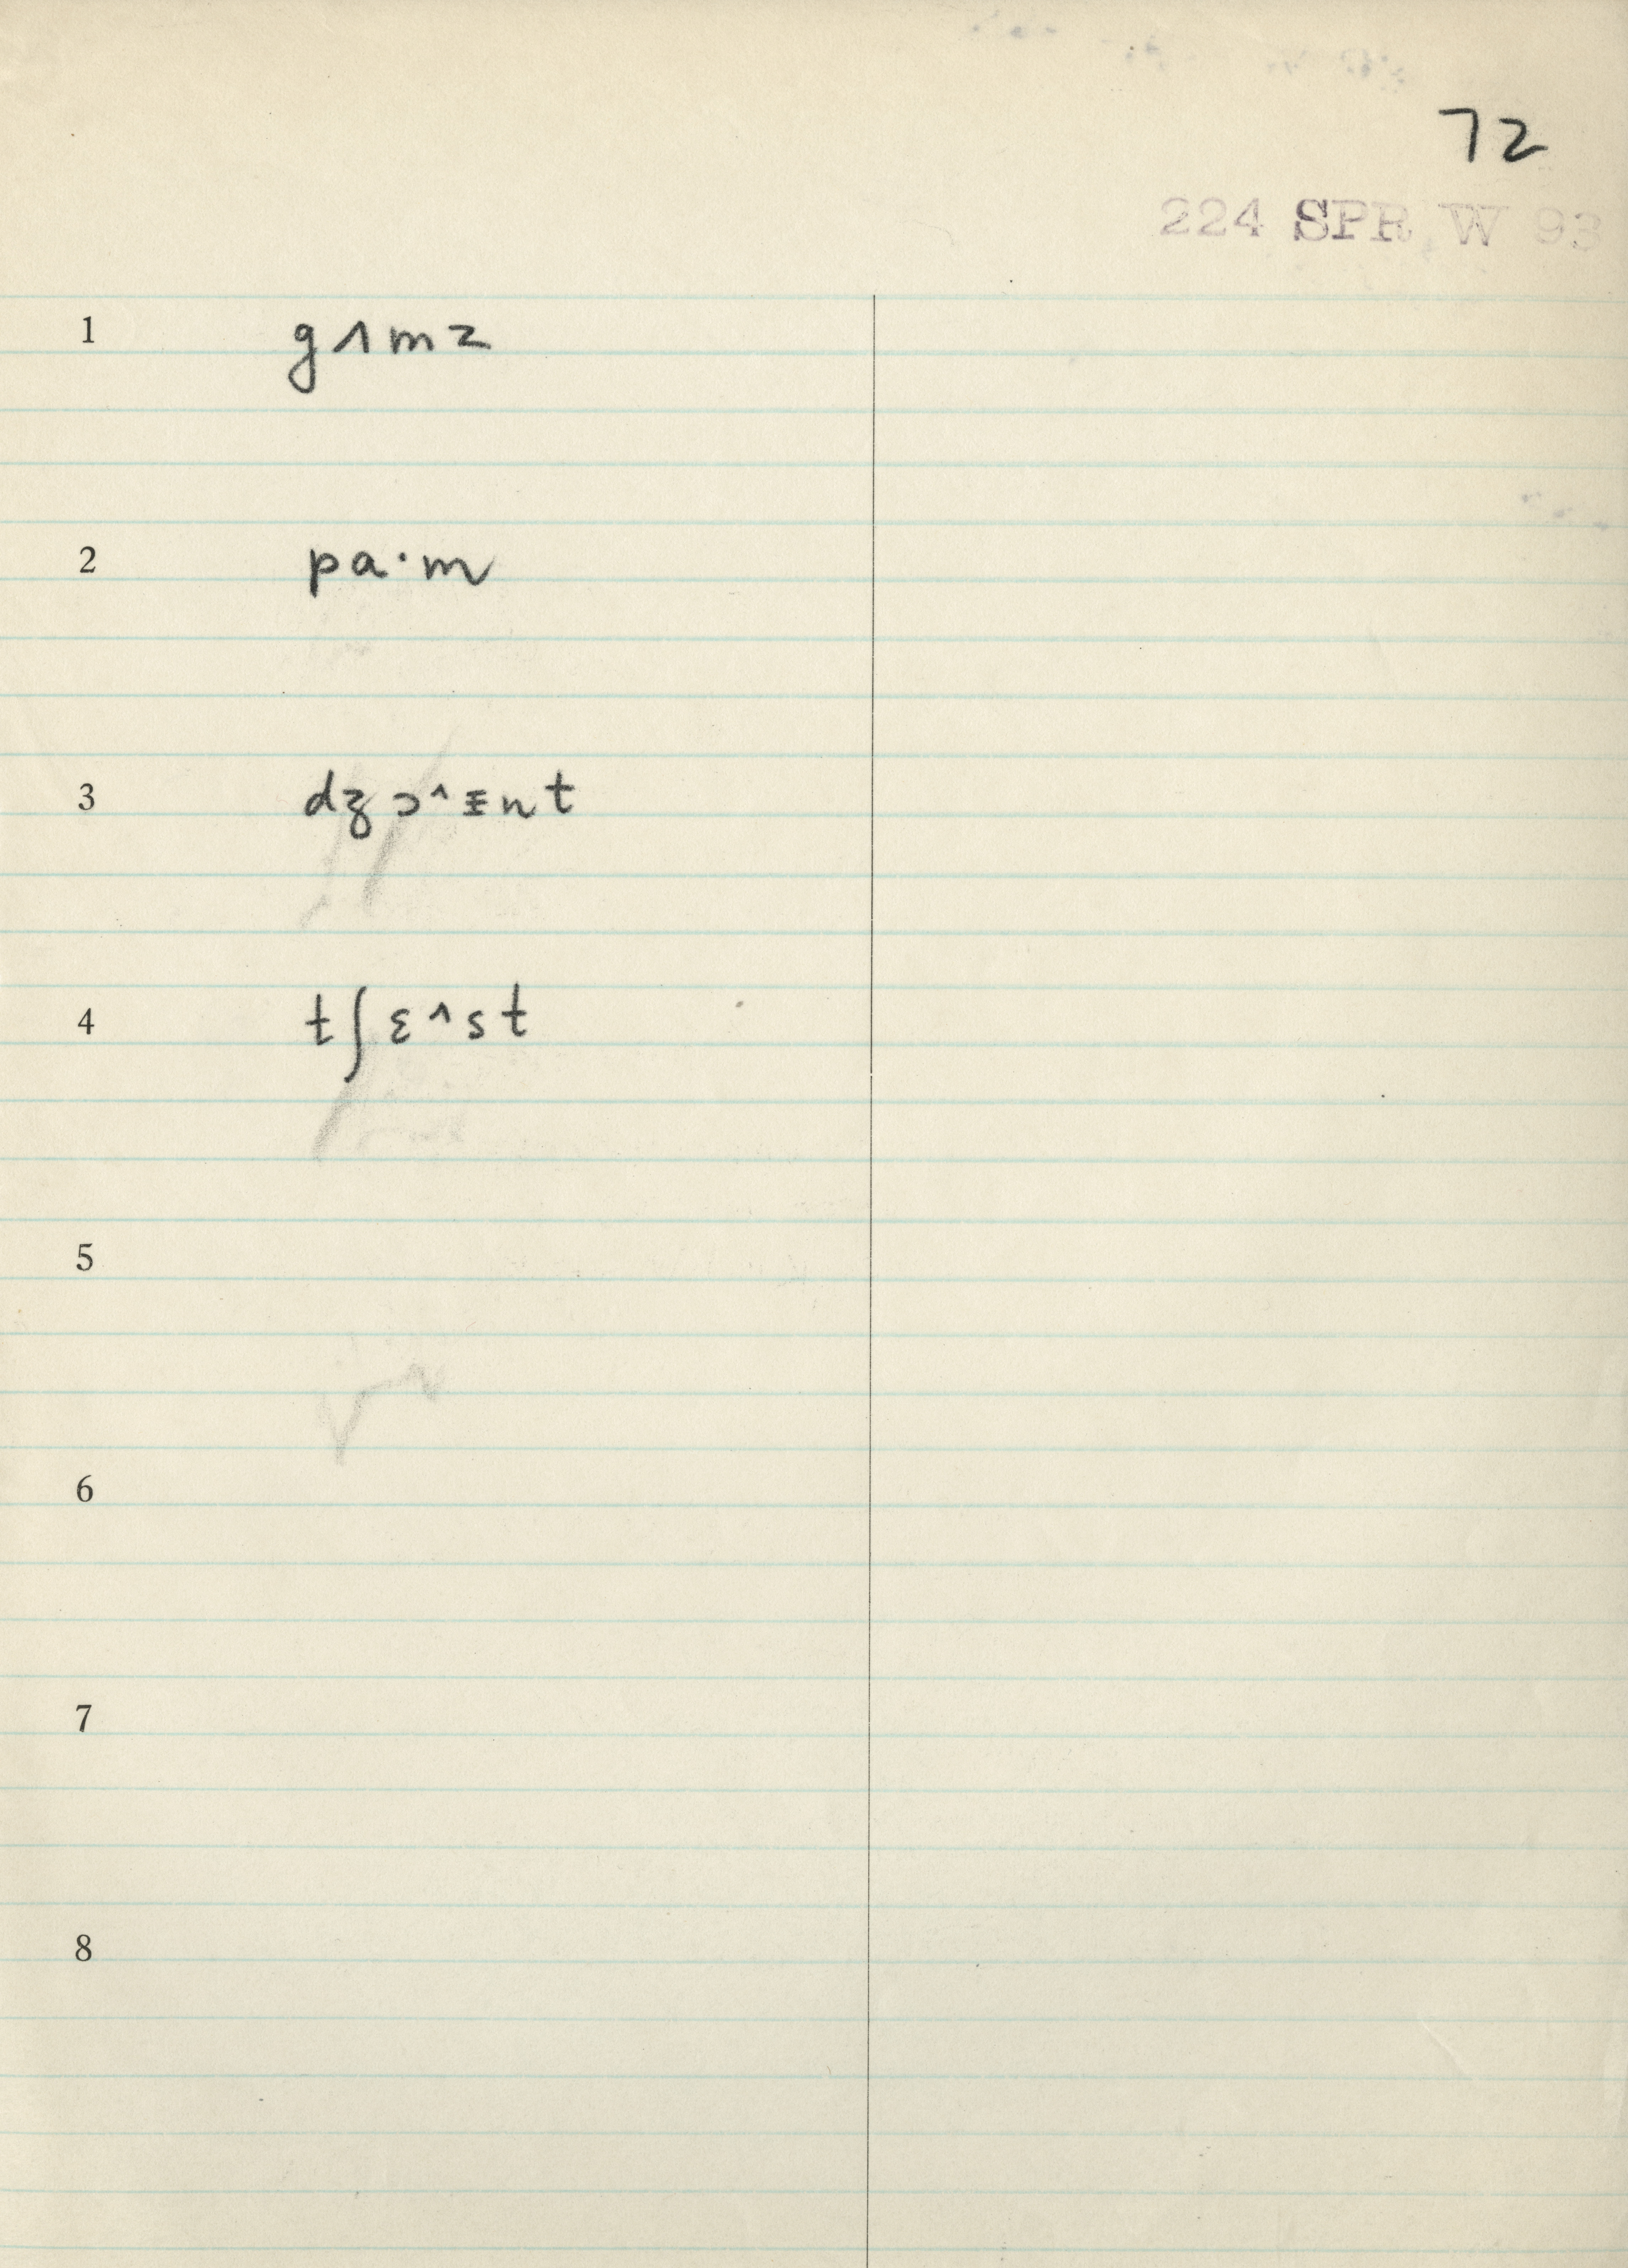 72
224 SPR W 93
1 gʌmz
2 pa·m
3 dʒɔ^ɪnt
4 tʃɛ^st
5
6
7
8